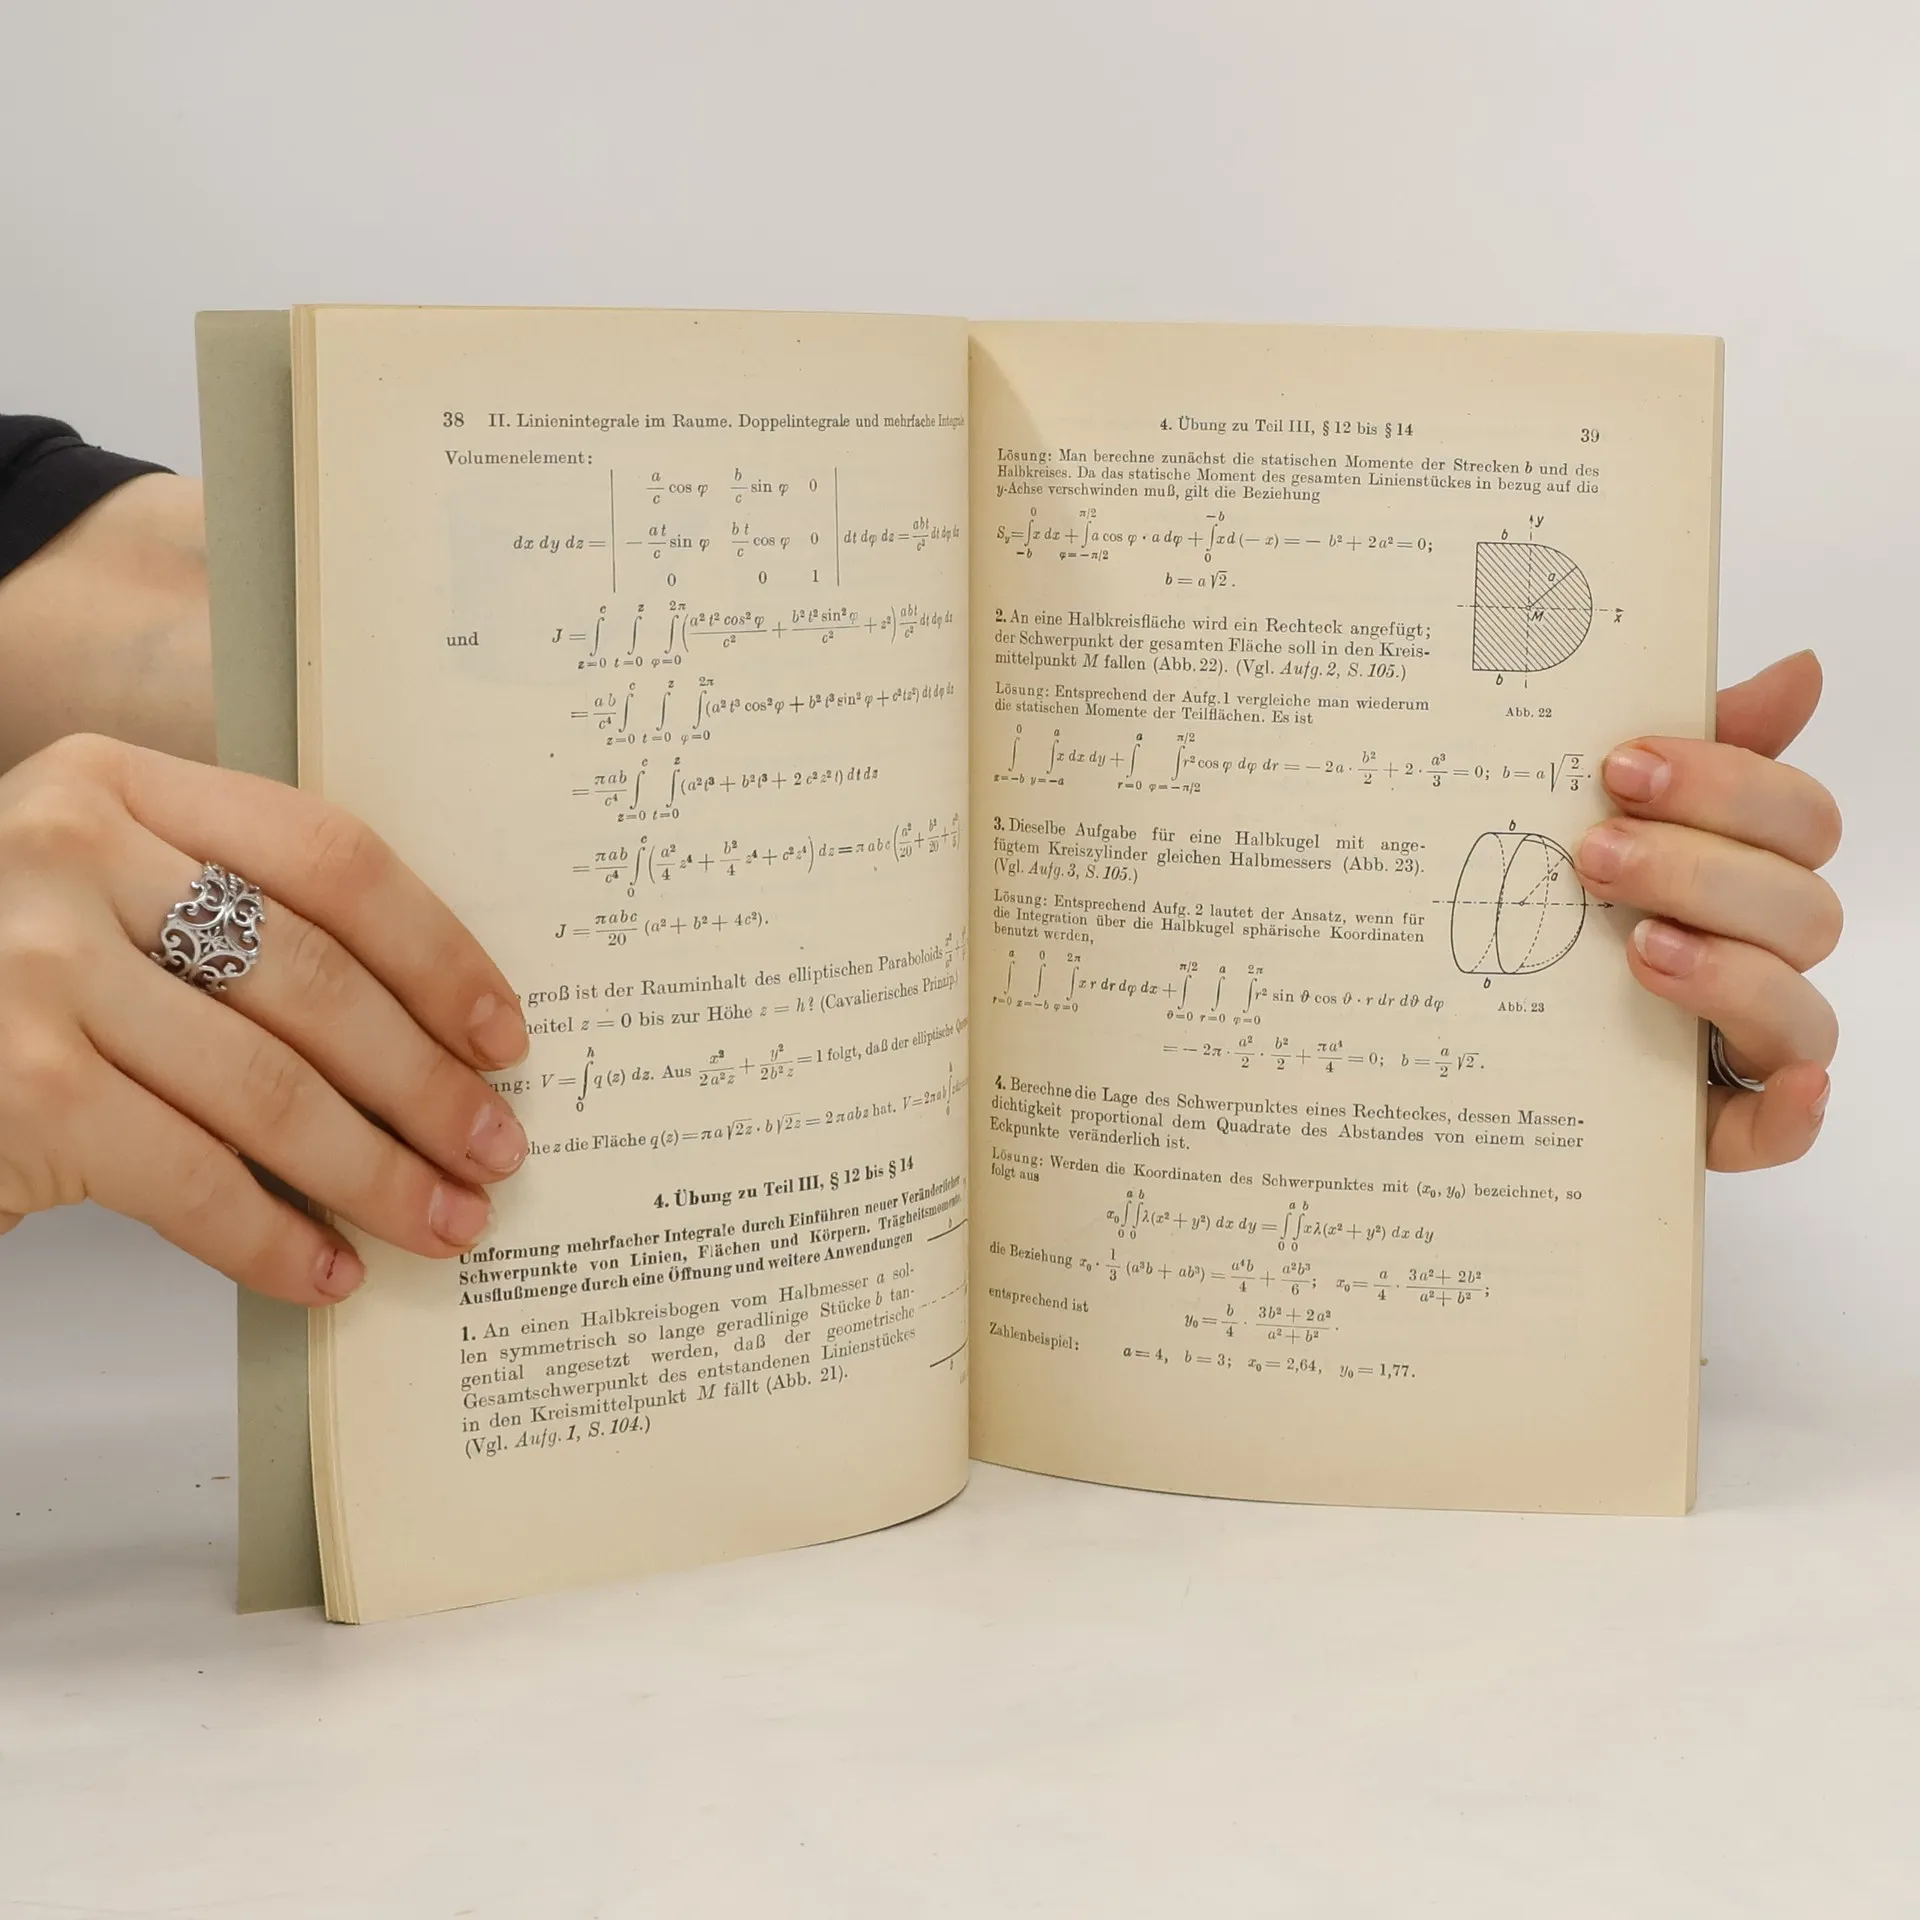 38 II. Linienintegrale im Raume. Doppelintegrale und mehrfache
Volumenelement:
dx dy dz = | a/c cos φ  b/c sin φ  0 |
| − at/c sin φ  bt/c cos φ  0 | dt dφ dz = abt/c² dt dφ dz
| 0  0  1 |
und J = ∫_{z=0}^{c} ∫_{t=0}^{z} ∫_{φ=0}^{2π} (a² t² cos² φ/c² + b² t² sin² φ/c² + z²) abt/c² dt dφ dz
= ab/c⁴ ∫_{z=0}^{c} ∫_{t=0}^{z} ∫_{φ=0}^{2π} (a² t³ cos² φ + b² t³ sin² φ + c² t z²) dt dφ dz
= πab/c⁴ ∫_{z=0}^{c} ∫_{t=0}^{z} (a² t³ + b² t³ + 2 c² z² t) dt dz
= πab/c⁴ ∫_{0}^{c} (a²/4 z⁴ + b²/4 z⁴ + c² z⁴) dz = π abc (a²/20 + b²/20 + c²/5)
J = πabc/20 (a² + b² + 4c²).
groß ist der Rauminhalt des elliptischen Paraboloids
heitel z = 0 bis zur Höhe z = h? (Cavalierisches Prinzip.)
ung: V = ∫_{0}^{h} q (z) dz. Aus x²/2a²z + y²/2b²z = 1 folgt, daß der elliptische
he z die Fläche q(z) = π a √2z · b √2z = 2 π abz hat. V = 2πab
4. Übung zu Teil III, § 12 bis § 14
Umformung mehrfacher Integrale durch Einführen neuer Veränderlicher
Schwerpunkte von Linien, Flächen und Körpern. Trägheitsmomente.
Ausflußmenge durch eine Öffnung und weitere Anwendungen
1. An einen Halbkreisbogen vom Halbmesser a sol-
len symmetrisch so lange geradlinige Stücke b tan-
gential angesetzt werden, daß der geometrische
Gesamtschwerpunkt des entstandenen Linienstückes
in den Kreismittelpunkt M fällt (Abb. 21).
(Vgl. Aufg. 1, S. 104.)
b
b
4. Übung zu Teil III, § 12 bis § 14 39
Lösung: Man berechne zunächst die statischen Momente der Strecken b und des
Halbkreises. Da das statische Moment des gesamten Linienstückes in bezug auf die
y-Achse verschwinden muß, gilt die Beziehung
S_y = ∫_{−b}^{0} x dx + ∫_{φ=−π/2}^{π/2} a cos φ · a dφ + ∫_{0}^{−b} x d (− x) = − b² + 2 a² = 0;
b = a √2.
y
b
a
M
x
b
Abb. 22
2. An eine Halbkreisfläche wird ein Rechteck angefügt;
der Schwerpunkt der gesamten Fläche soll in den Kreis-
mittelpunkt M fallen (Abb. 22). (Vgl. Aufg. 2, S. 105.)
Lösung: Entsprechend der Aufg. 1 vergleiche man wiederum
die statischen Momente der Teilflächen. Es ist
∫_{x=−b}^{0} ∫_{y=−a}^{a} x dx dy + ∫_{r=0}^{a} ∫_{φ=−π/2}^{π/2} r² cos φ dφ dr = − 2a · b²/2 + 2 · a³/3 = 0; b = a √(2/3).
3. Dieselbe Aufgabe für eine Halbkugel mit ange-
fügtem Kreiszylinder gleichen Halbmessers (Abb. 23).
(Vgl. Aufg. 3, S. 105.)
Lösung: Entsprechend Aufg. 2 lautet der Ansatz, wenn für
die Integration über die Halbkugel sphärische Koordinaten
benutzt werden,
b
a
b
Abb. 23
∫_{r=0}^{a} ∫_{x=−b}^{0} ∫_{φ=0}^{2π} x r dr dφ dx + ∫_{ϑ=0}^{π/2} ∫_{r=0}^{a} ∫_{φ=0}^{2π} r² sin ϑ cos ϑ · r dr dϑ dφ
= − 2π · a²/2 · b²/2 + πa⁴/4 = 0; b = a/2 √2.
4. Berechne die Lage des Schwerpunktes eines Rechteckes, dessen Massen-
dichtigkeit proportional dem Quadrate des Abstandes von einem seiner
Eckpunkte veränderlich ist.
Lösung: Werden die Koordinaten des Schwerpunktes mit (x₀, y₀) bezeichnet, so
folgt aus
x₀ ∫_{0}^{a} ∫_{0}^{b} λ (x² + y²) dx dy = ∫_{0}^{a} ∫_{0}^{b} x λ (x² + y²) dx dy
die Beziehung x₀ · 1/3 (a³b + ab³) = a⁴b/4 + a²b³/6; x₀ = a/4 · 3a² + 2b²/a² + b²;
entsprechend ist y₀ = b/4 · 3b² + 2a²/a² + b².
Zahlenbeispiel: a = 4, b = 3; x₀ = 2,64, y₀ = 1,77.